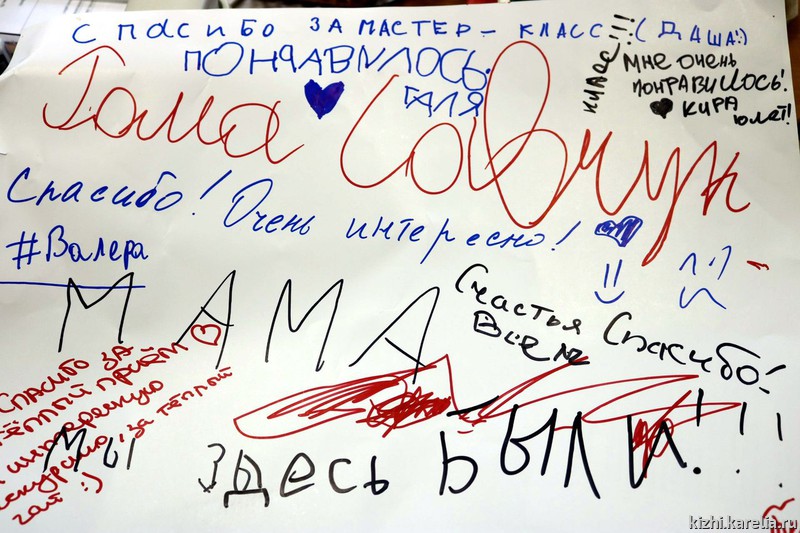 СПАСИБО ЗА МАСТЕР-КЛАСС!!! (ДАША!)
ПОНРАВИЛОСЬ.
ГАЛЯ
КЛАСС
МНЕ ОЧЕНЬ
ПОНРАВИЛОСЬ!
КИРА
Тома Савчук
Спасибо! Очень интересно!
#Валера
МАМА
Счастья
Всем
Спасибо!
СПАСИБО ЗА
ТЁПЛЫЙ ПРИЁМ
И интересную
экскурсию, за тёплый
чай :)
МЫ ЗДЕСЬ БЫЛИ!!!
kizhi.karelia.ru